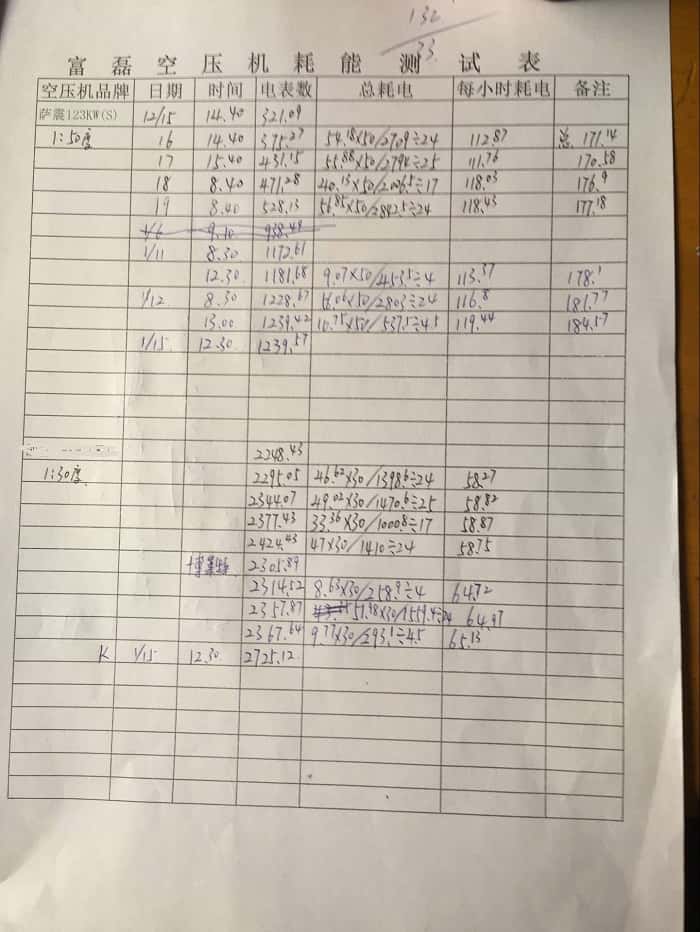 132
33
富磊空压机耗能测试表
空压机品牌 日期 时间 电表数 总耗电 每小时耗电 备注
萨震123KW(S) 12/15 14.40 321.09
1:50度 16 14.40 375.27 54.18×50/2709÷24 112.87 总 171.14
17 15.40 431.15 55.88×50/2794÷25 111.76 170.58
18 8.40 471.28 40.13×50/2006.5÷17 118.03 176.9
19 8.40 528.13 56.85×50/2842.5÷24 118.43 177.18
1/6 9.10 938.49
1/11 8.30 1172.61
12.30 1181.68 9.07×50/453.5÷4 113.37 178.1
1/12 8.30 1228.67 56.06×50/2803÷24 116.8 181.77
13.00 1239.42 10.75×50/537.5÷4.5 119.44 184.57
1/15 12.30 1239.57
2248.43
1:30度 2295.05 46.62×30/1398.6÷24 58.27
2344.07 49.02×30/1470.6÷25 58.82
2377.43 33.36×30/1000.8÷17 58.87
2424.43 47×30/1410÷24 58.75
2305.89
2314.52 8.63×30/258.9÷4 64.72
2357.87 51.98×30/1559.4÷24 64.97
2367.64 9.77×30/293.1÷4.5 65.13
K 1/15 12.30 2725.12